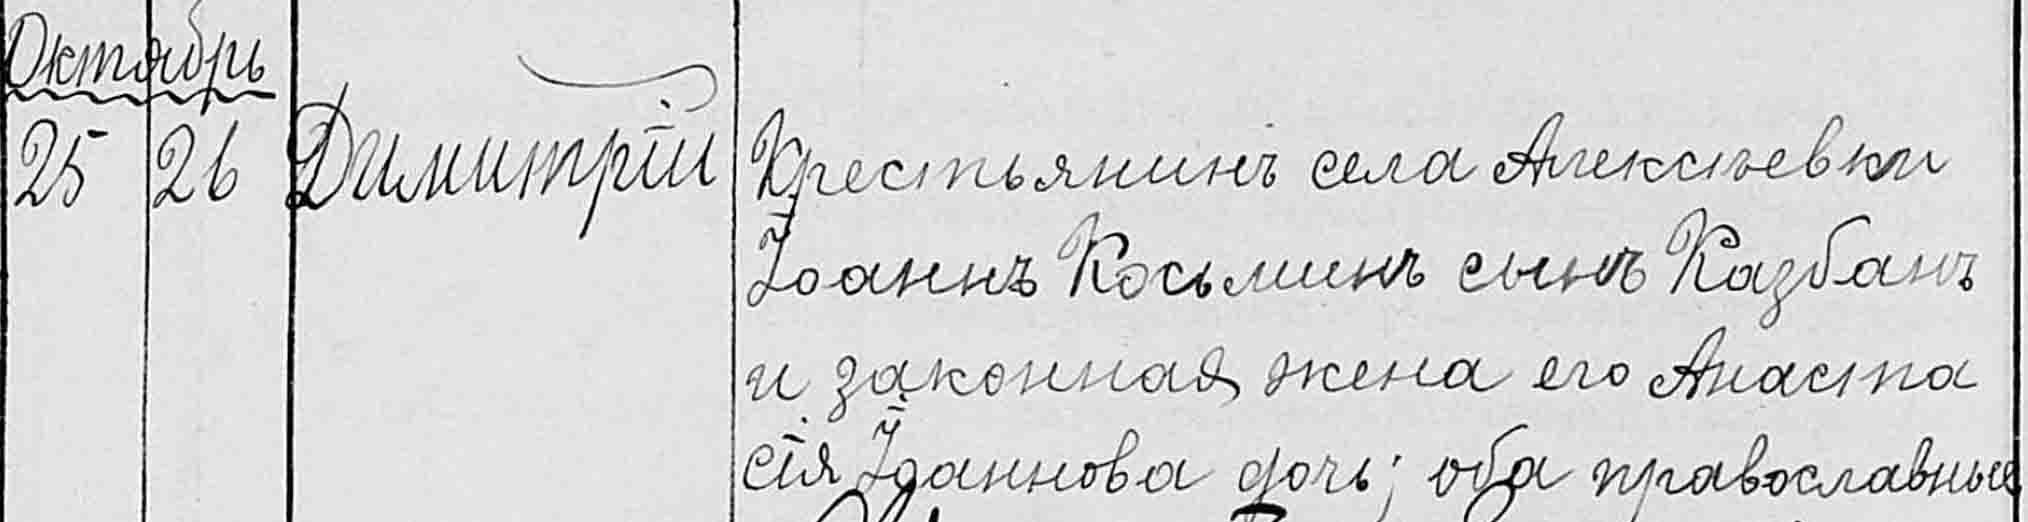 Октябрь
25 26 Димитрій Крестьянинъ села Алексѣевки
Іоаннъ Косьминъ сынъ Казбанъ
и законная жена его Анаста
сія Іоаннова дочь; оба православные